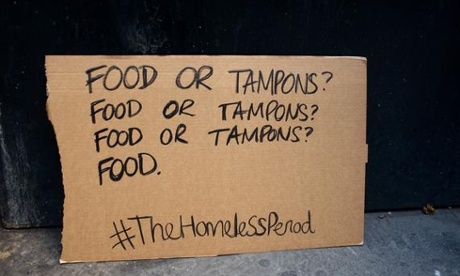 FOOD OR TAMPONS?
FOOD OR TAMPONS?
FOOD OR TAMPONS?
FOOD.
#TheHomelessPeriod